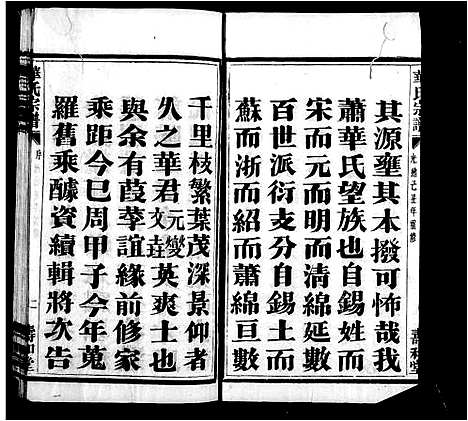 華氏宗譜
光緒己丑年重修
壽和堂
其源壅其本撥可怖哉我
蕭華氏望族也自錫姓而
宋而元而明而清綿延數
百世派衍支分自錫土而
蘇而浙而紹而蕭綿亘數
千里枝繁葉茂深景仰者
久之華君元燮文莊英爽士也
與余有葭莩誼緣前修家
乘距今已周甲子今年蒐
羅舊乘醵資續輯將次告
華氏宗譜
序
一
壽和堂